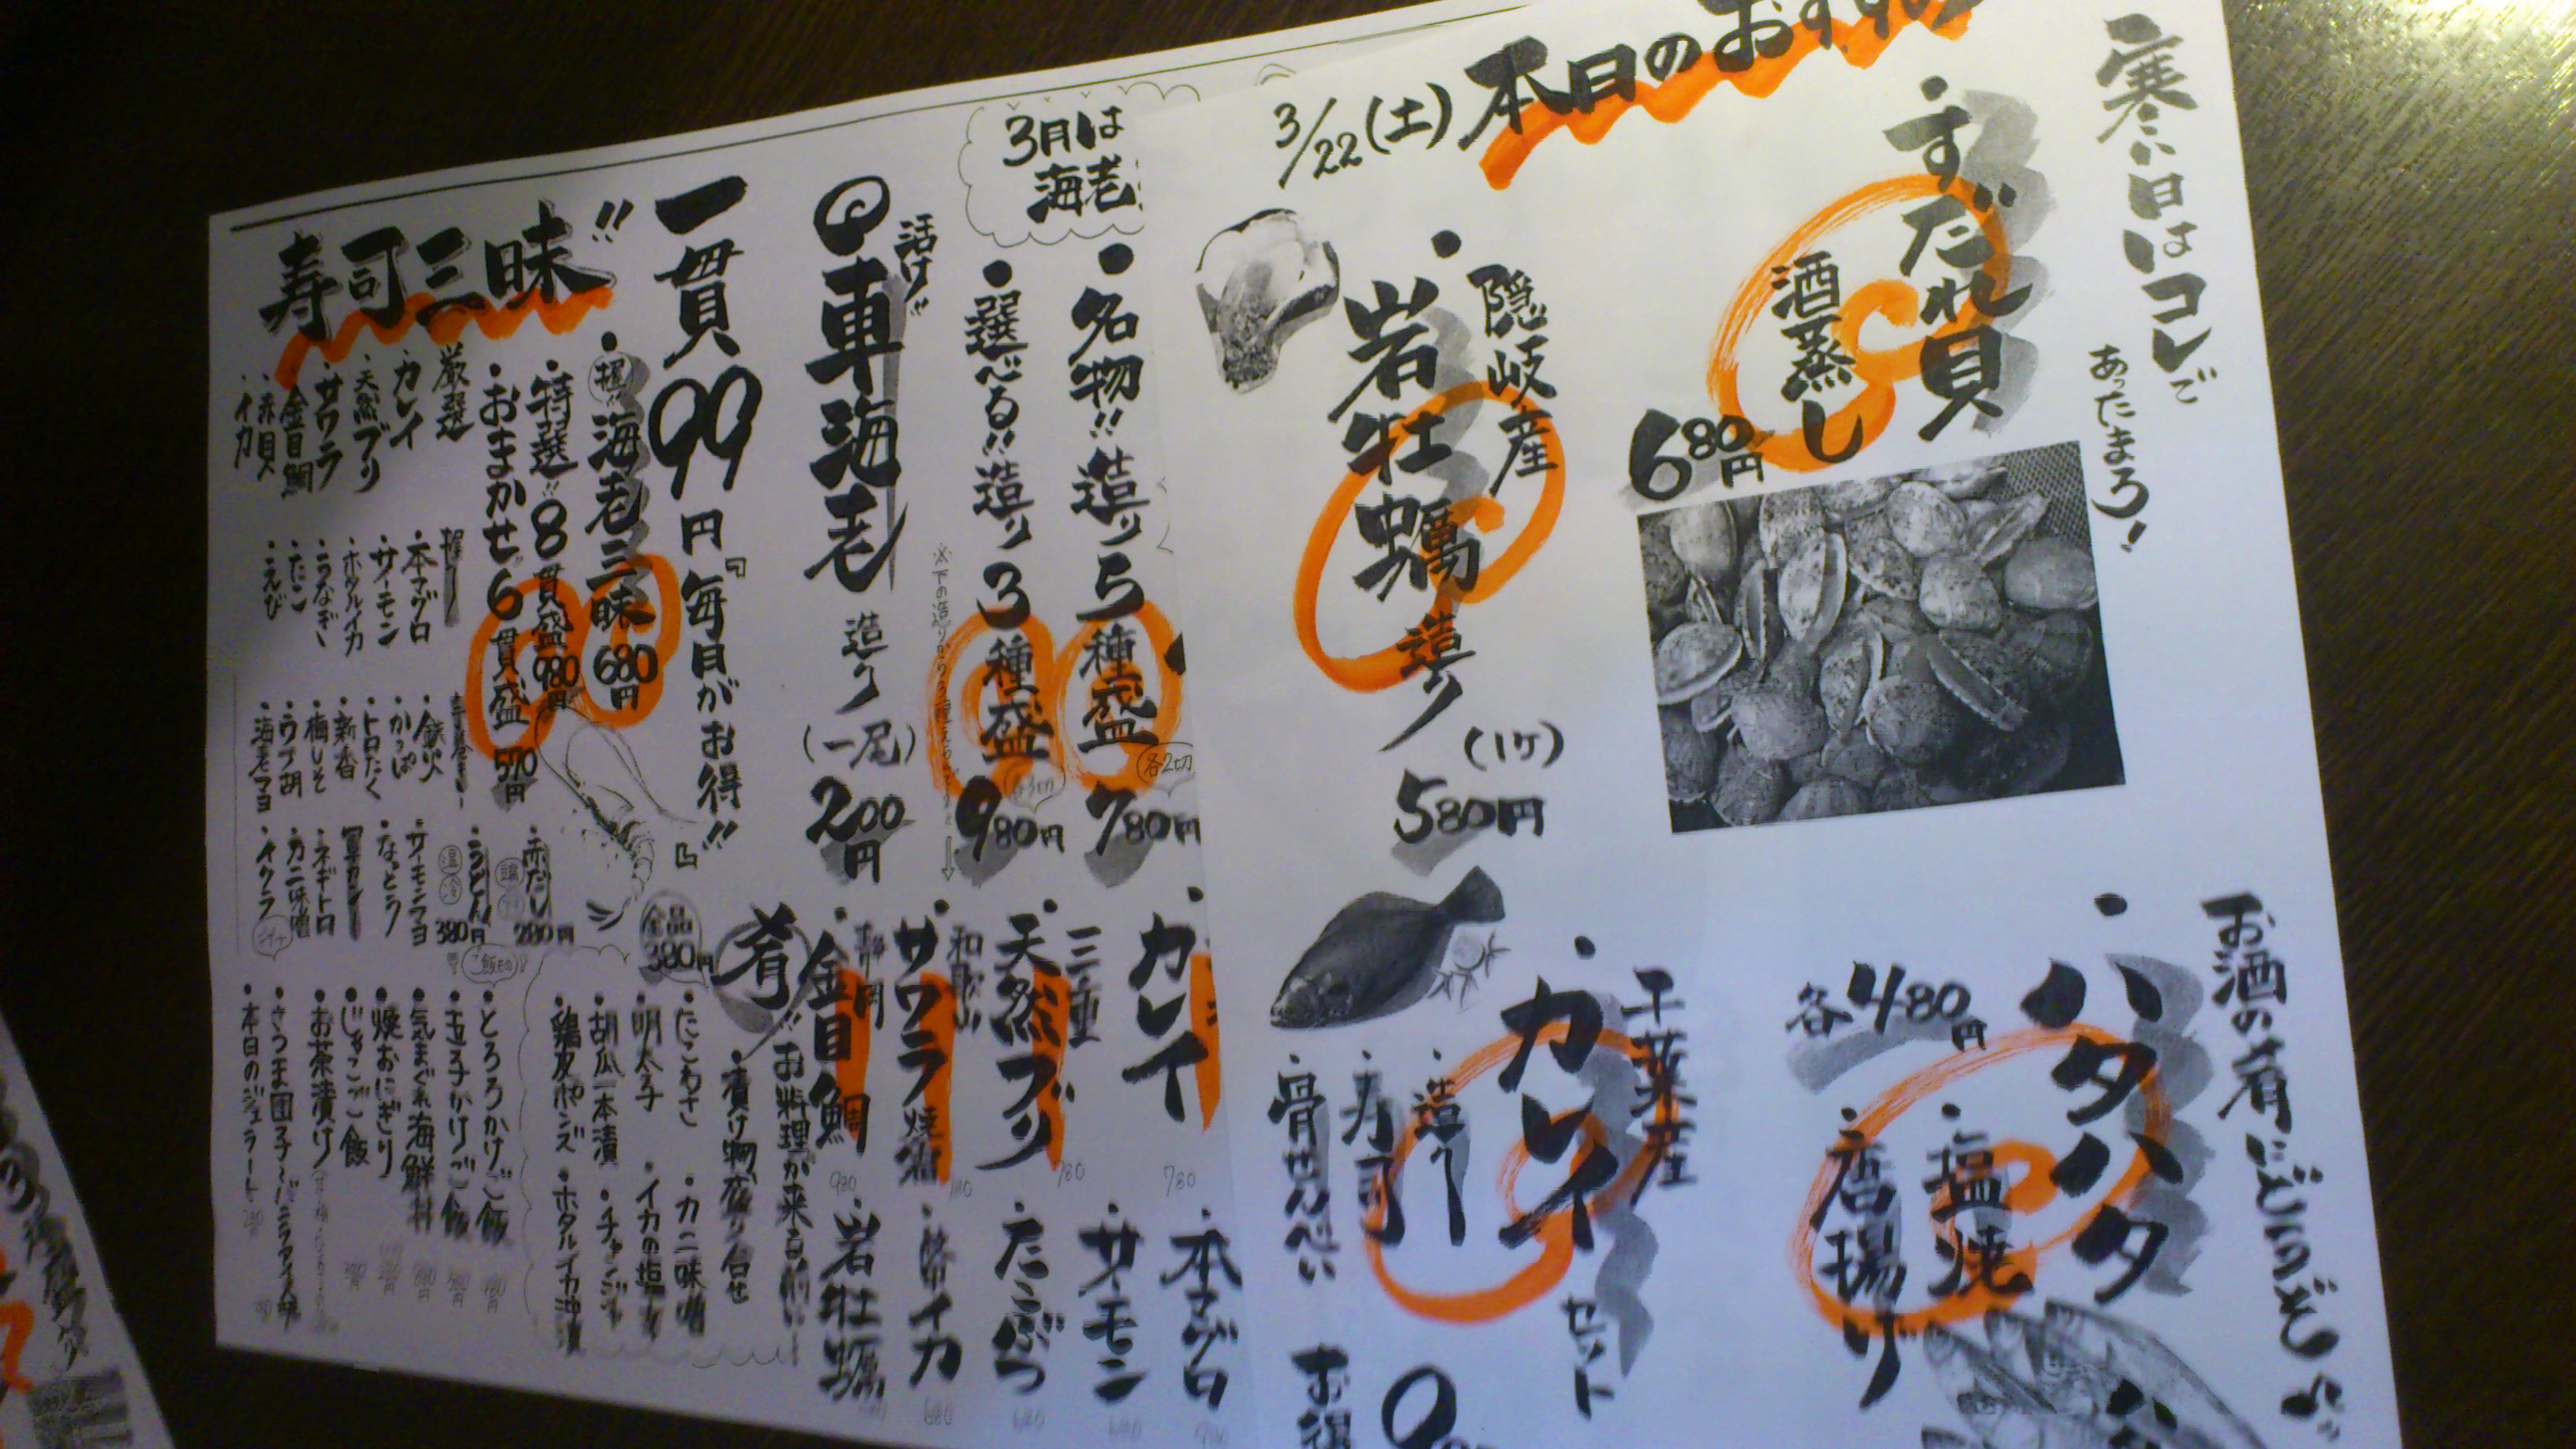 寒い日はコレで
あったまろう！
・すだれ貝
酒蒸し
680円
お酒の肴にどうぞ!!
・ハタハタ
各480円
・塩焼
・唐揚げ
3/22(土)本日のおすすめ
隠岐産
・岩牡蠣造り
(1ヶ)
580円
千葉産
・カレイセット
・造り
・寿司
・骨せんべい
お得
3月は
海老
・名物!!造り5種盛
各2切
780円
・選べる!!造り3種盛
980円
活け
車海老
造り
(一尾)
200円
・カレイ
780
・天然ブリ
780
・サワラ
・金目鯛
980
・本マグロ
・サーモン
・たこぶつ
・岩牡蠣
一貫99円『毎日がお得!!』
寿司三昧!!
・握り海老三昧
680円
・特選!!8貫盛
980円
・おまかせ6貫盛
570円
厳選
・カレイ
・天然ブリ
・サワラ
・金目鯛
・赤貝
・イカ
握り
・本マグロ
・サーモン
・ホタルイカ
・うなぎ
・たこ
・えび
・鉄火
・かっぱ
・トロたく
・新香
・梅しそ
・海老マヨ
・赤だし
280円
・うどん
温
冷
380円
・サーモンマヨ
・なっとう
軍カン
・ネギトロ
・カニ味噌
・イクラ
肴!!
全品
380円
お料理が来る前に
・漬け物盛り合せ
・たこわさ
・明太子
・胡瓜一本漬
・鶏皮ポンズ
・カニ味噌
・イカの塩辛
・チャンジャ
・ホタルイカ沖漬
ご飯もの
・とろろかけご飯
・玉子かけご飯
・気まぐれ海鮮丼
・焼おにぎり
・じゃこご飯
・お茶漬け
・本日のジェラート